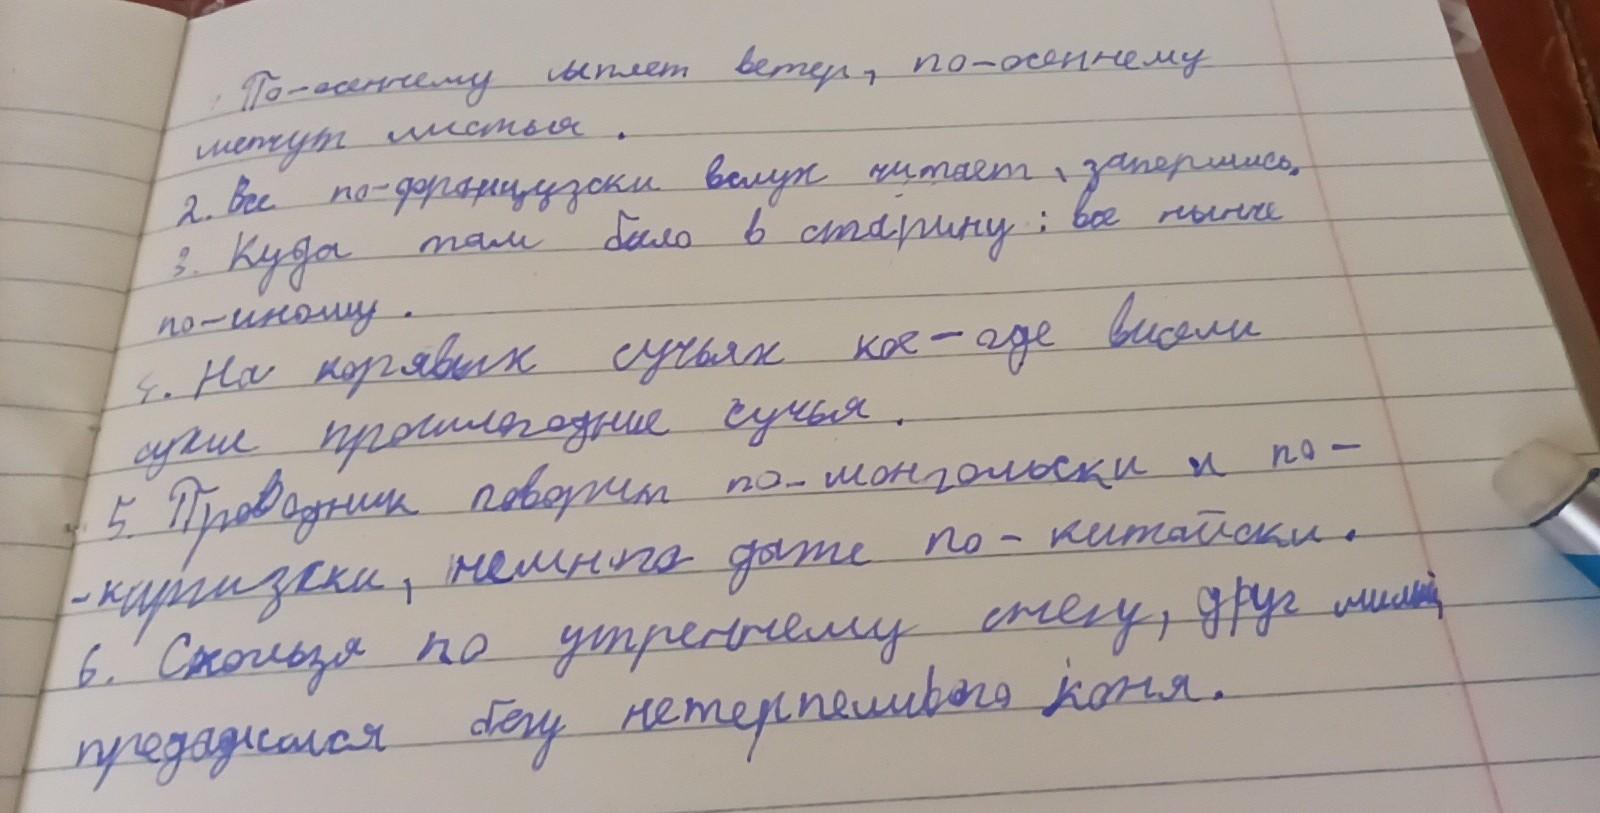 По-осеннему сыплет ветер, по-осеннему
метут листья.
2. Все по-французски вслух читает, запершись.
3. Куда там было в старину: все нынче
по-иному.
4. На корявых сучьях кое-где висели
сухие прошлогодние сучья.
5. Проводник говорит по-монгольски и по-
-киргизски, немного даже по-китайски.
6. Скользя по утреннему снегу, друг милый,
предадимся бегу нетерпеливого коня.